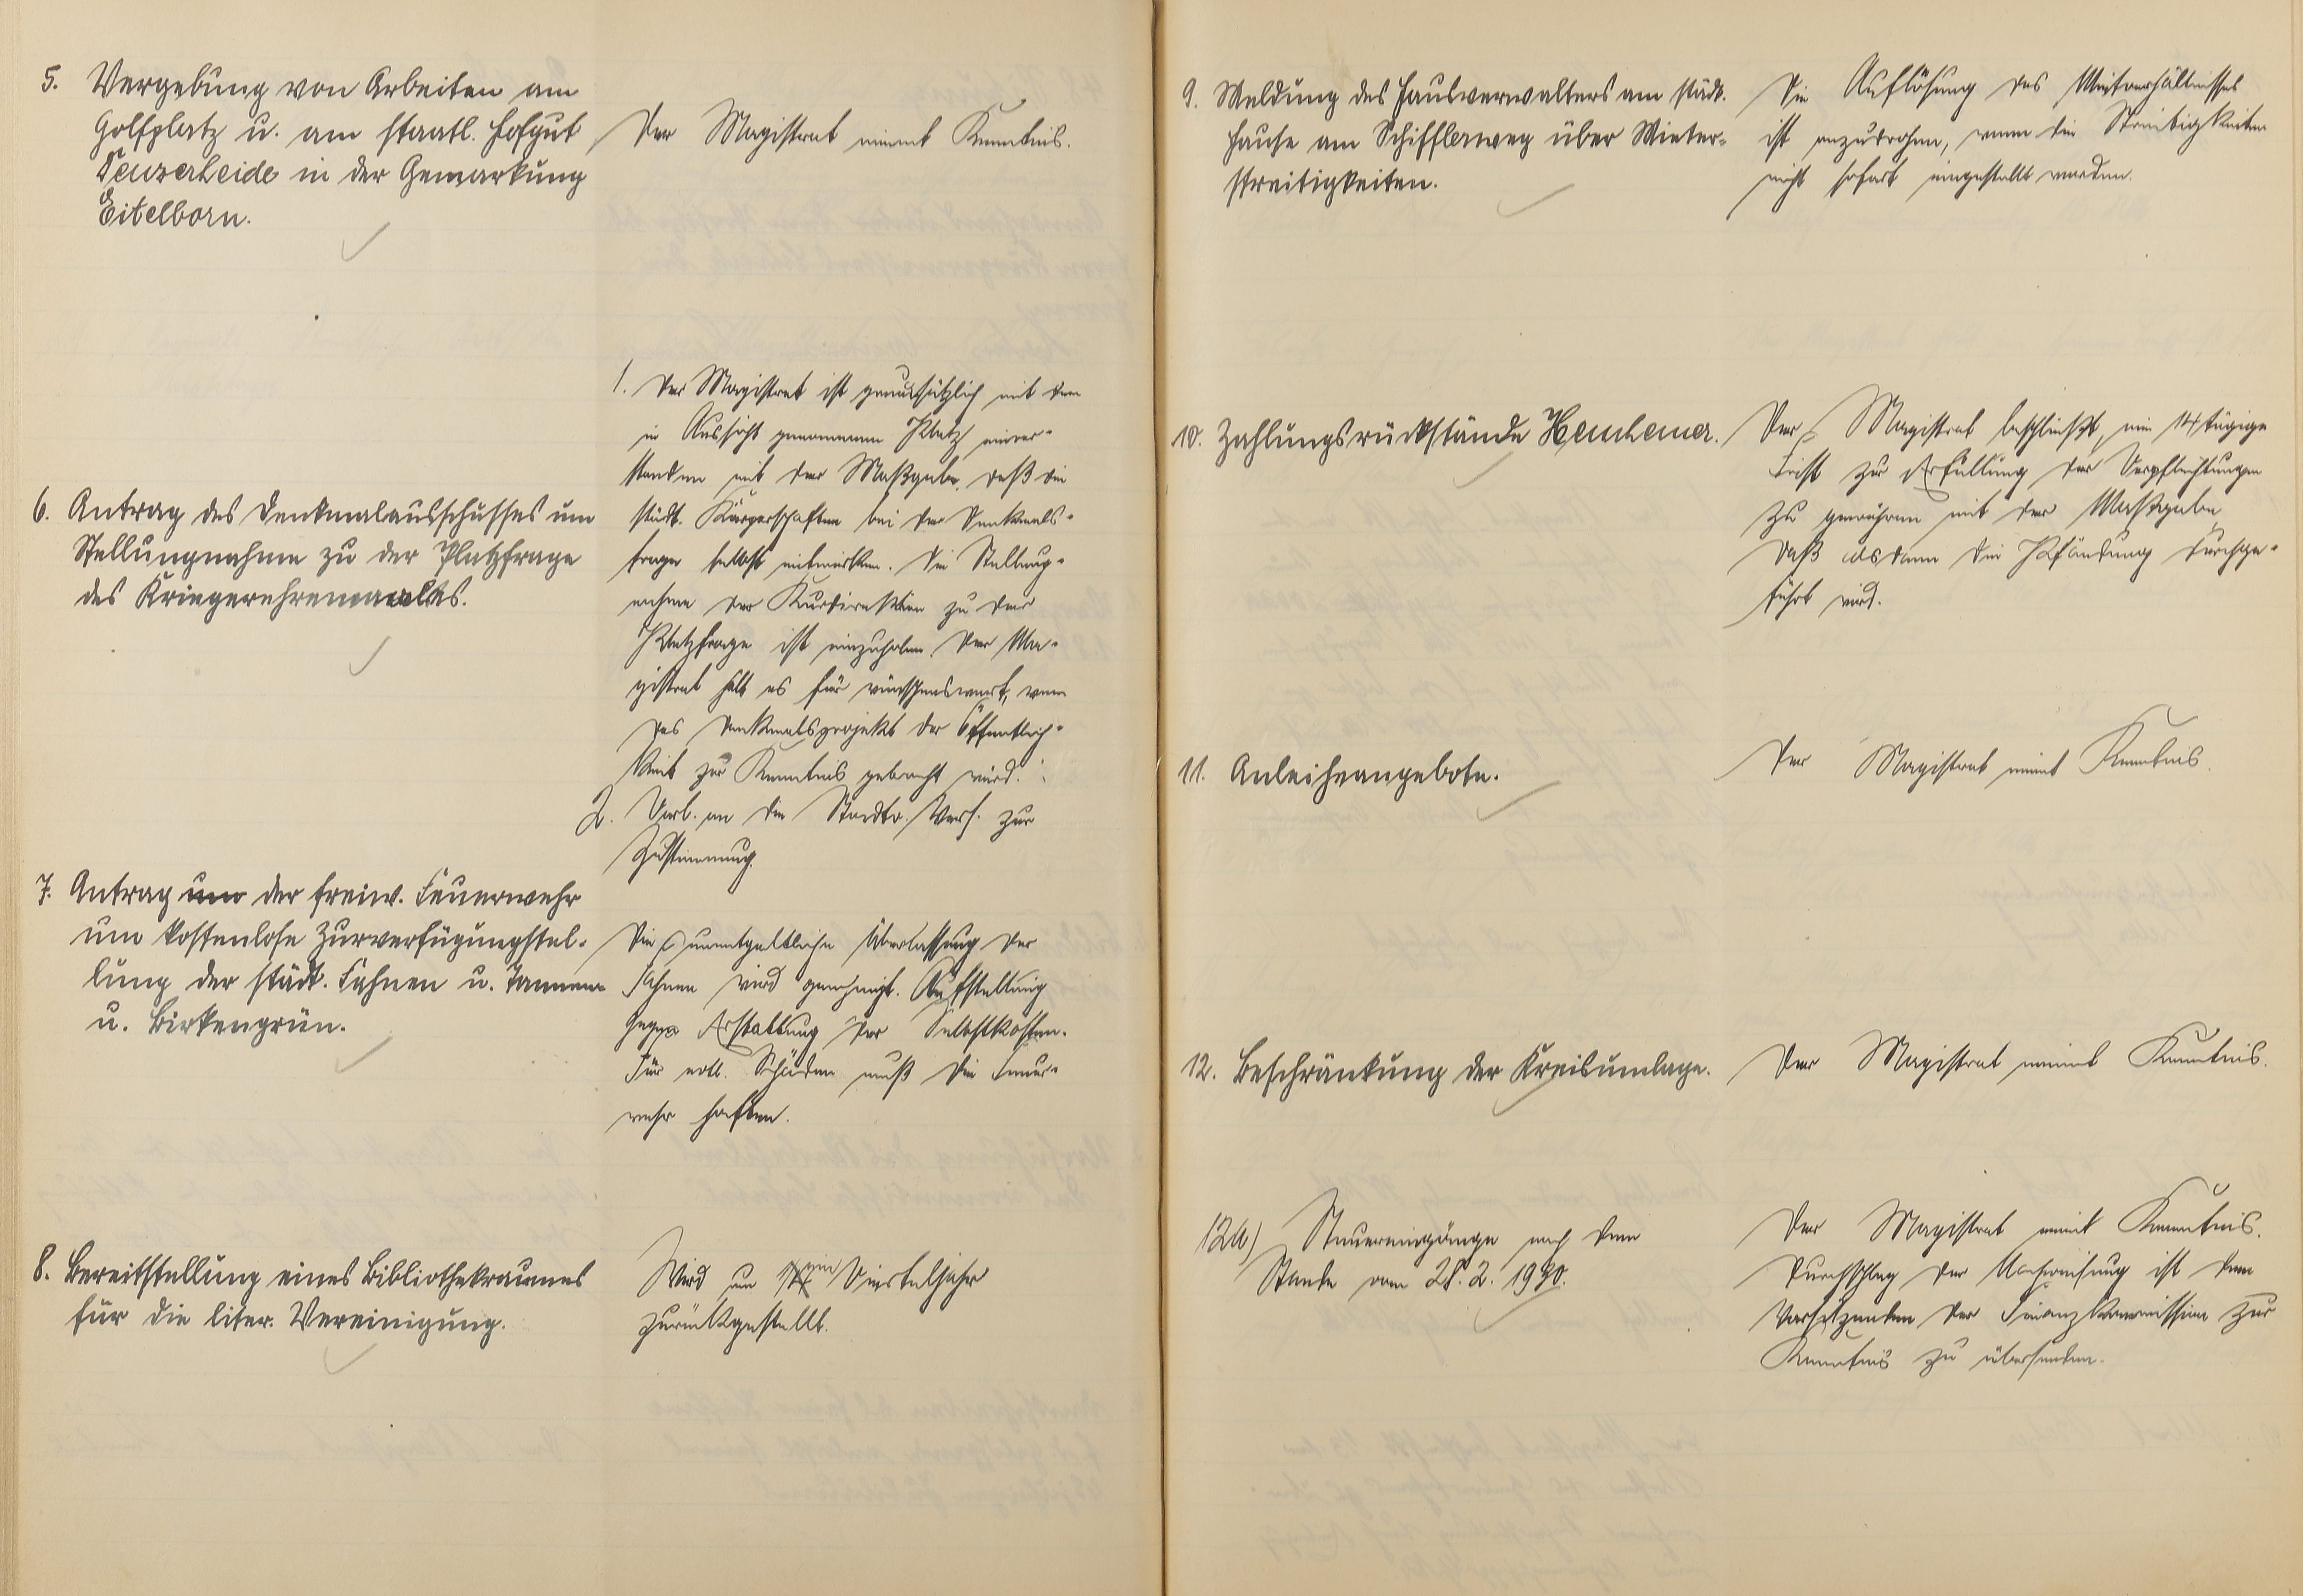 5. Vergebung von Arbeiten am
Golfplatz u. am staatl. Hofgut
Denzerheide in der Gemarkung
Eitelborn.
Der Magistrat nimmt Kenntnis.
6. Antrag des Denkmalausschusses um
Stellungnahme zu der Platzfrage
des Kriegerehrenmales.
1. Der Magistrat ist grundsätzlich mit dem
in Aussicht genommenen Platz einver-
standen mit der Maßgabe, daß die
städt. Körperschaften bei der Denkmals-
frage selbst mitwirken. Die Stellung-
nahme der Kurdirektion zu der
Platzfrage ist einzuholen. Der Ma-
gistrat hält es für wünschenswert, wenn
das Denkmalsprojekt der Öffentlich-
keit zur Kenntnis gebracht wird.
2. Vorl. an die Stadtv. Vers. zur
Zustimmung.
7. Antrag um der freiw. Feuerwehr
um kostenlose Zurverfügungstel-
lung der städt. Fahnen u. Tannen-
u. Birkengrün.
Die unentgeltliche Überlassung der
Fahnen wird genehmigt. Aufstellung
gegen Erstattung der Selbstkosten.
Für evtl. Schäden muß die Feuer-
wehr haften.
8. Bereitstellung eines Bibliothekraumes
für die liter. Vereinigung.
Wird um ein Vierteljahr
zurückgestellt.
9. Meldung des Hausverwalters am städt.
Hause am Schifflerweg über Mieter-
streitigkeiten.
Die Auflösung des Mietverhältnisses
ist anzudrohen, wenn die Streitigkeiten
nicht sofort eingestellt werden.
10. Zahlungsrückstände
Der Magistrat beschließt, eine 14tägige
Frist zur Erfüllung der Verpflichtungen
zu gewähren mit der Maßgabe,
daß alsdann die Pfändung durchge-
führt wird.
11. Anleiheangebote.
Der Magistrat nimmt Kenntnis.
12. Beschränkung der Kreisumlage.
Der Magistrat nimmt Kenntnis.
12a) Steuereingänge nach dem
Stande vom 28. 2. 1930.
Der Magistrat nimmt Kenntnis.
Durchschlag der Nachweisung ist dem
Vorsitzenden der Finanzkommission zur
Kenntnis zu übersenden.